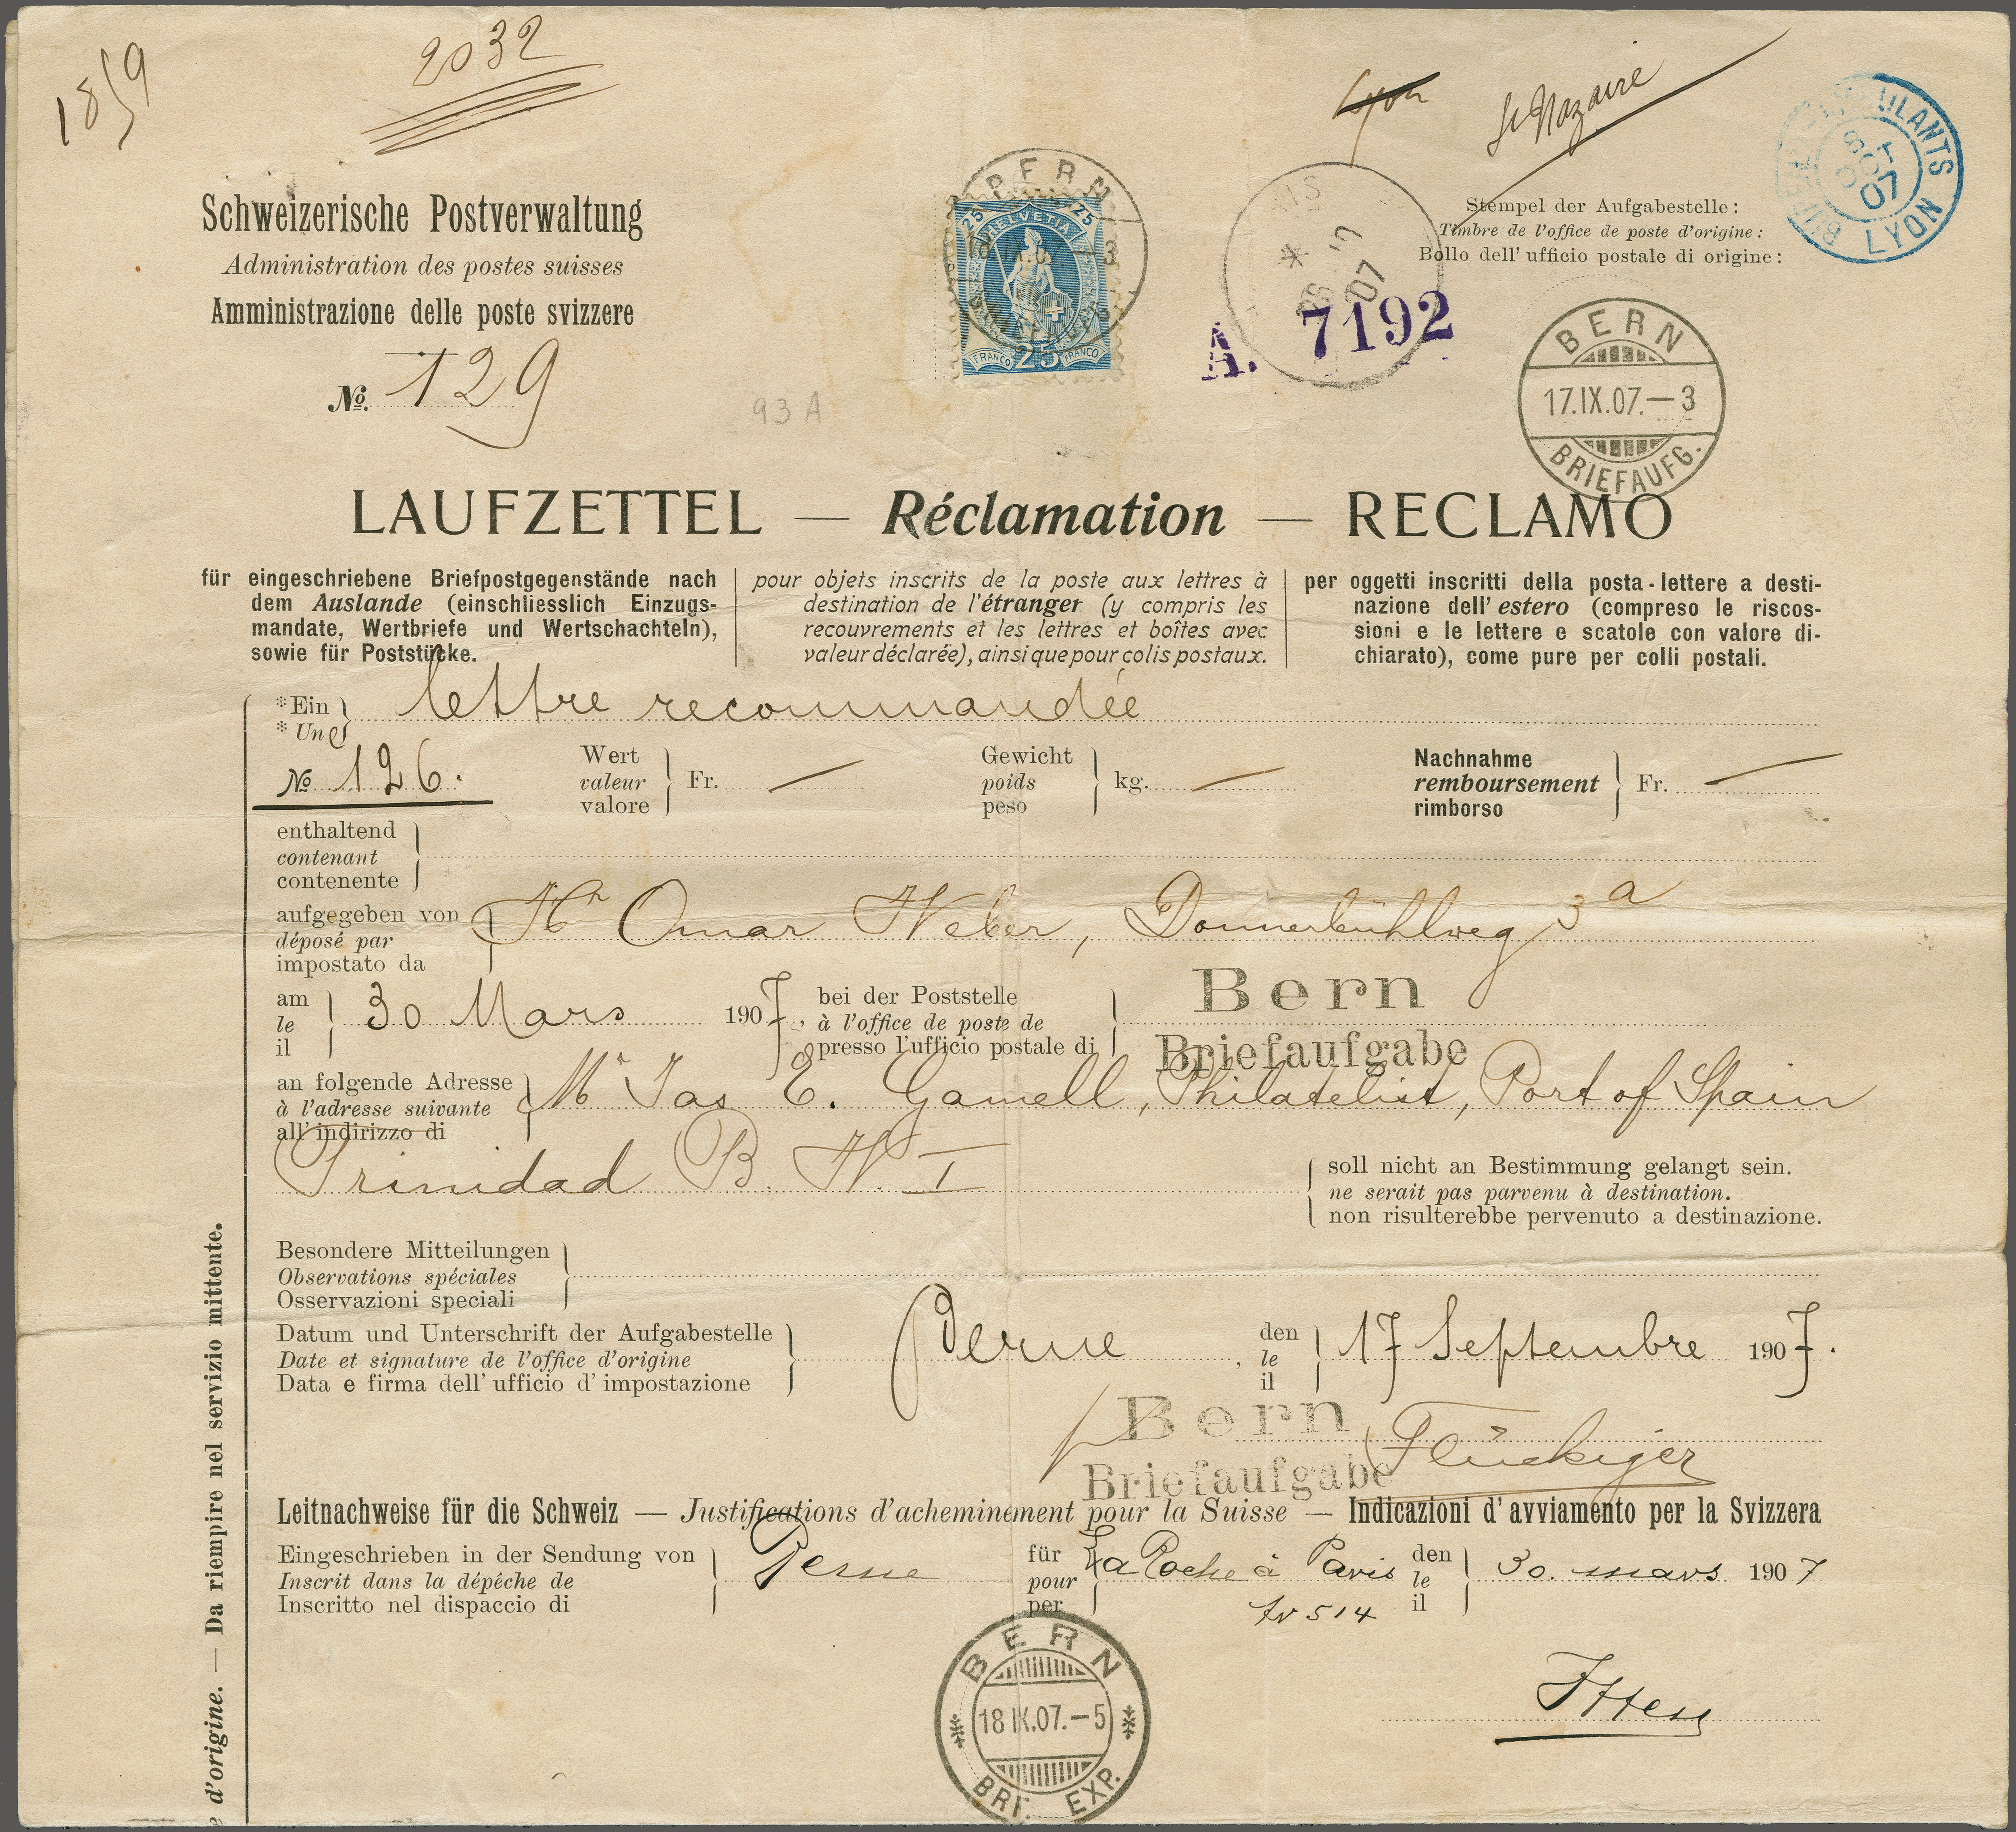 18/9
2032
Lyon
St Nazaire
LYON
07
Schweizerische Postverwaltung
Administration des postes suisses
Amministrazione delle poste svizzere
No. 129
93 A
BERN
25 HELVETIA 25
FRANCO 25 FRANCO
07
A. 7192
Stempel der Aufgabestelle:
Timbre de l'office de poste d'origine:
Bollo dell' ufficio postale di origine:
BERN
17.IX.07.—3
BRIEFAUFG.
LAUFZETTEL — Réclamation — RECLAMO
für eingeschriebene Briefpostgegenstände nach
dem Auslande (einschliesslich Einzugs-
mandate, Wertbriefe und Wertschachteln),
sowie für Poststücke.
pour objets inscrits de la poste aux lettres à
destination de l'étranger (y compris les
recouvrements et les lettres et boîtes avec
valeur déclarée), ainsi que pour colis postaux.
per oggetti inscritti della posta-lettere a desti-
nazione dell' estero (compreso le riscos-
sioni e le lettere e scatole con valore di-
chiarato), come pure per colli postali.
*Ein
*Une
lettre recommandée
No 126.
Wert
valeur
valore
Fr. —
Gewicht
poids
peso
kg. —
Nachnahme
remboursement
rimborso
Fr. —
enthaltend
contenant
contenente
aufgegeben von
déposé par
impostato da
Hr Omar Weber, Donnerbühlweg 3a
am
le
il
30 Mars 1907,
bei der Poststelle
à l'office de poste de
presso l'ufficio postale di
Bern
Briefaufgabe
an folgende Adresse
à l'adresse suivante
all' indirizzo di
Mr Jas E. Gamell, Philatelist, Port of Spain
Trinidad B. W. I
soll nicht an Bestimmung gelangt sein.
ne serait pas parvenu à destination.
non risulterebbe pervenuto a destinazione.
Besondere Mitteilungen
Observations spéciales
Osservazioni speciali
Datum und Unterschrift der Aufgabestelle
Date et signature de l'office d'origine
Data e firma dell' ufficio d' impostazione
Berne,
den
le
il
17 Septembre 1907.
Bern
Briefaufgabe
Flückiger
Leitnachweise für die Schweiz — Justifications d'acheminement pour la Suisse — Indicazioni d' avviamento per la Svizzera
Eingeschrieben in der Sendung von
Inscrit dans la dépêche de
Inscritto nel dispaccio di
Berne
für
pour
per
La Roche à Paris
tr 514
den
le
il
30. mars 1907
BERN
18 IX.07.—5
BRF. EXP.
Itten
d'origine. — Da riempire nel servizio mittente.